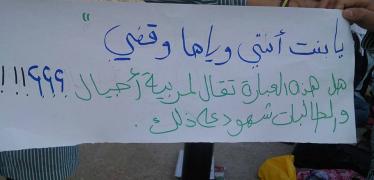 "
يا بنت أنتي وراها وقضي
هل هذه العبارة تقال لمربية أجيال ؟؟؟!!!
والطالبات شهود عه ذلك.